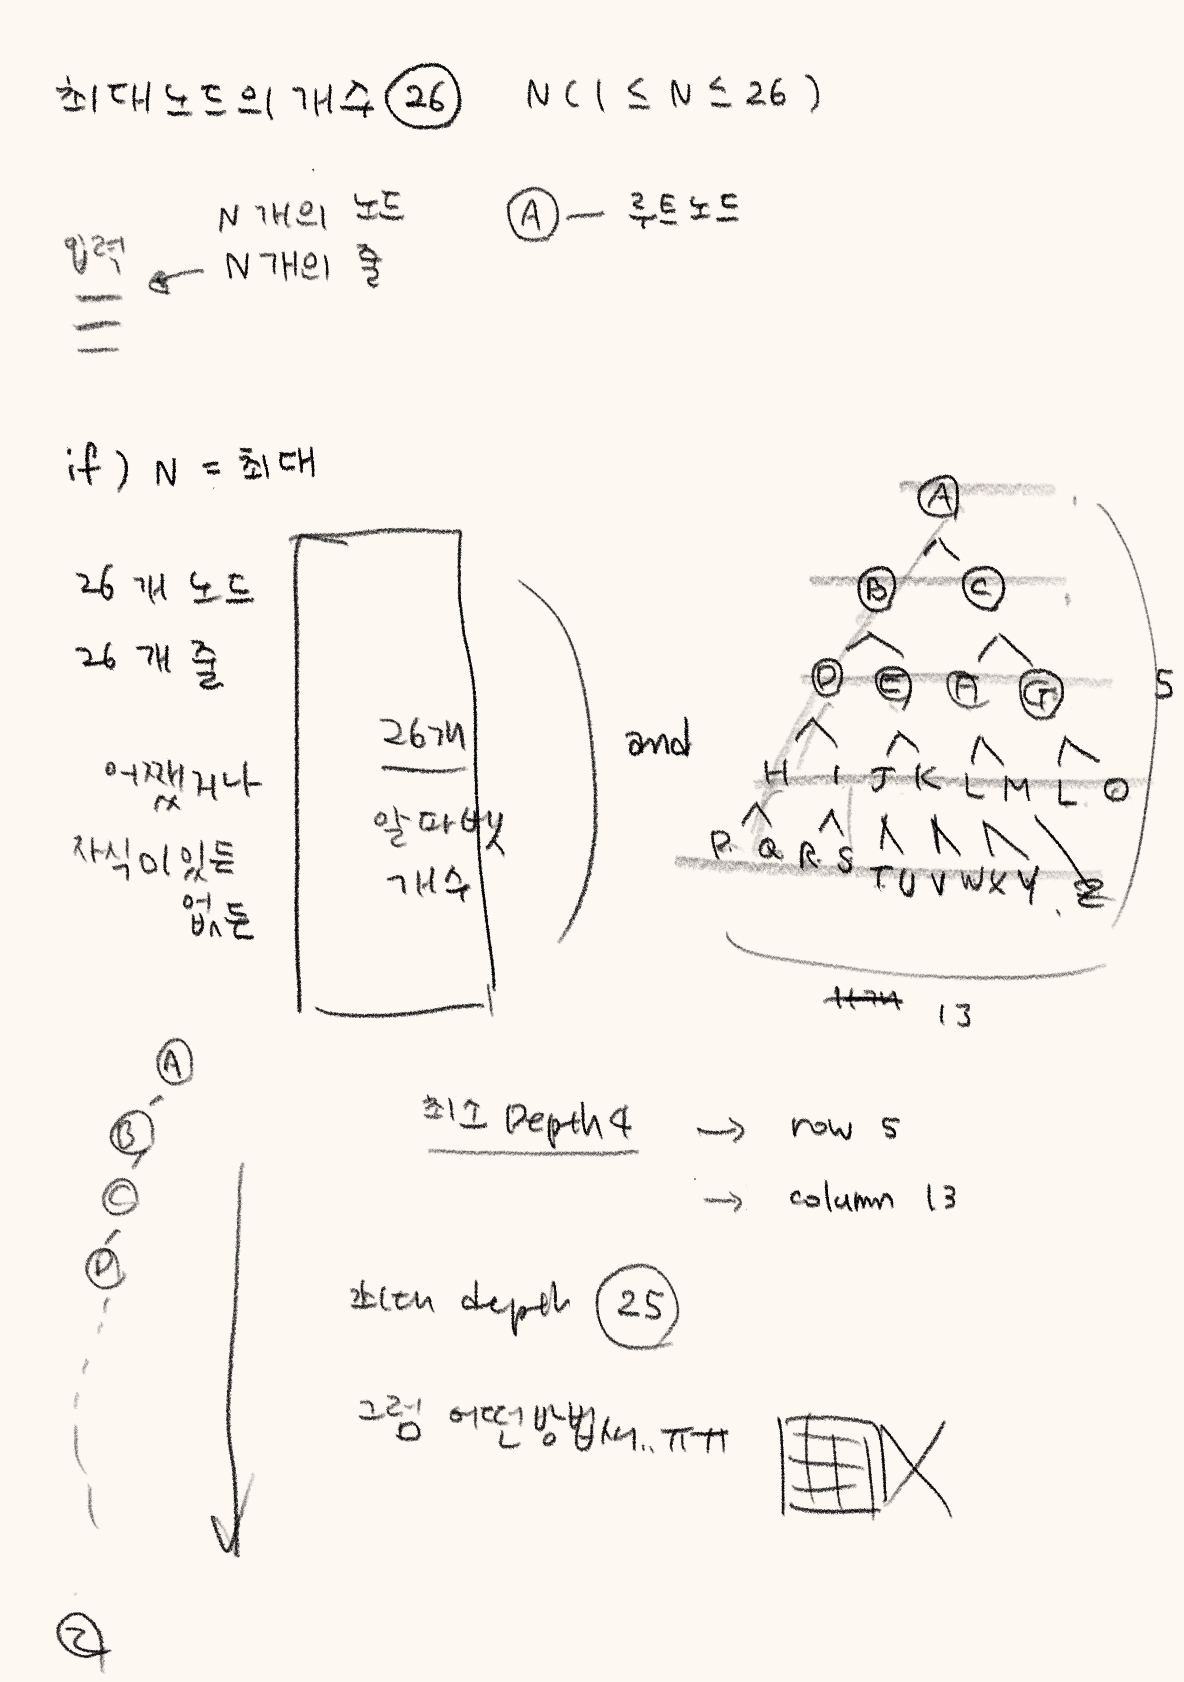 최대노드의 개수 26 N ( 1 ≤ N ≤ 26 )
N 개의 노드
N 개의 줄
A — 루트노드
입력
if ) N = 최대
26 개 노드
26 개 줄
어쨌거나
자식이 있든
없든
26개
알파벳
개수
and
A
B C
D E F G
H I J K L M L O
P. Q R. S T U V W X Y . Z
5
11개 13
A
B
C
D
최소 Depth 4 → row 5
→ column 13
최대 depth 25
그럼 어떤방법써.. ㅠㅠ